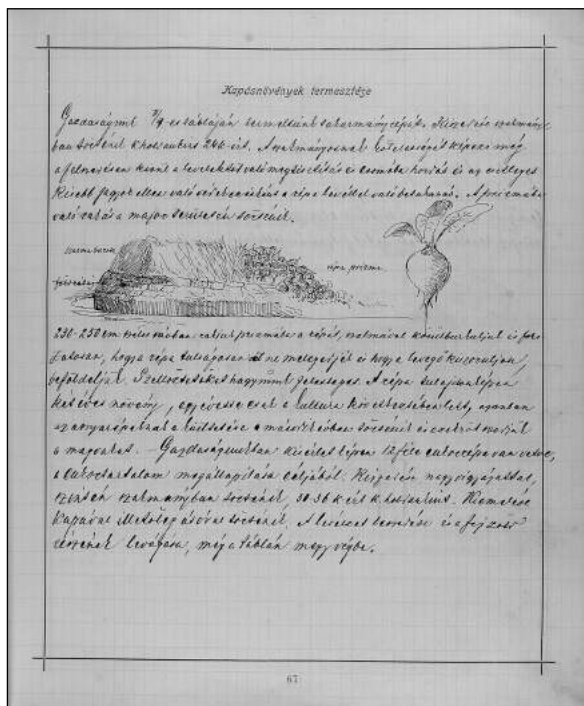 Kapásnövények termesztése
Gazdaságunk es tábláján termeltünk takarmányrépát. Kiszedése szakmány-
ban történt k. holdankint 24 k.-ért. A szakmányosnak kötelességét képezi még
a felszedésen kivül a levelektől való megtisztítás és csomóba hordás és az esetleges
kisebb fagyok ellen való védekezésül a répa levéllel való betakarása. A prizmába
való rakás a major területén történik.
szalma boríték
földréteg
répa prizma
230-250 cm széles sávban rakjuk prizmába a répát, szalmával körülburkoljuk és
hogy a répa túlságosan ne melegedjék és hogy a levegő kiszoruljon,
beföldeljük. Szellőztetőket hagyunk A répa tulajdonképen
kétéves növény, egyévessé csak a kultura következtében lett, azonban
az anyarépáknak a kiültetése a második évben történik és ezek hozzák
a magvakat. – Gazdaságunkban kisérletképen 12 féle cukorrépa van vetve,
a cukortartalom megállapítása céljából. Kiszedése
szintén szakmányban történik, 30-36 k.-ért k. holdankint. Kiemelése
kapával illetőleg ásóval történik. A levelek leszedése és a fej
részének levágása, még a táblán megy végbe.
67